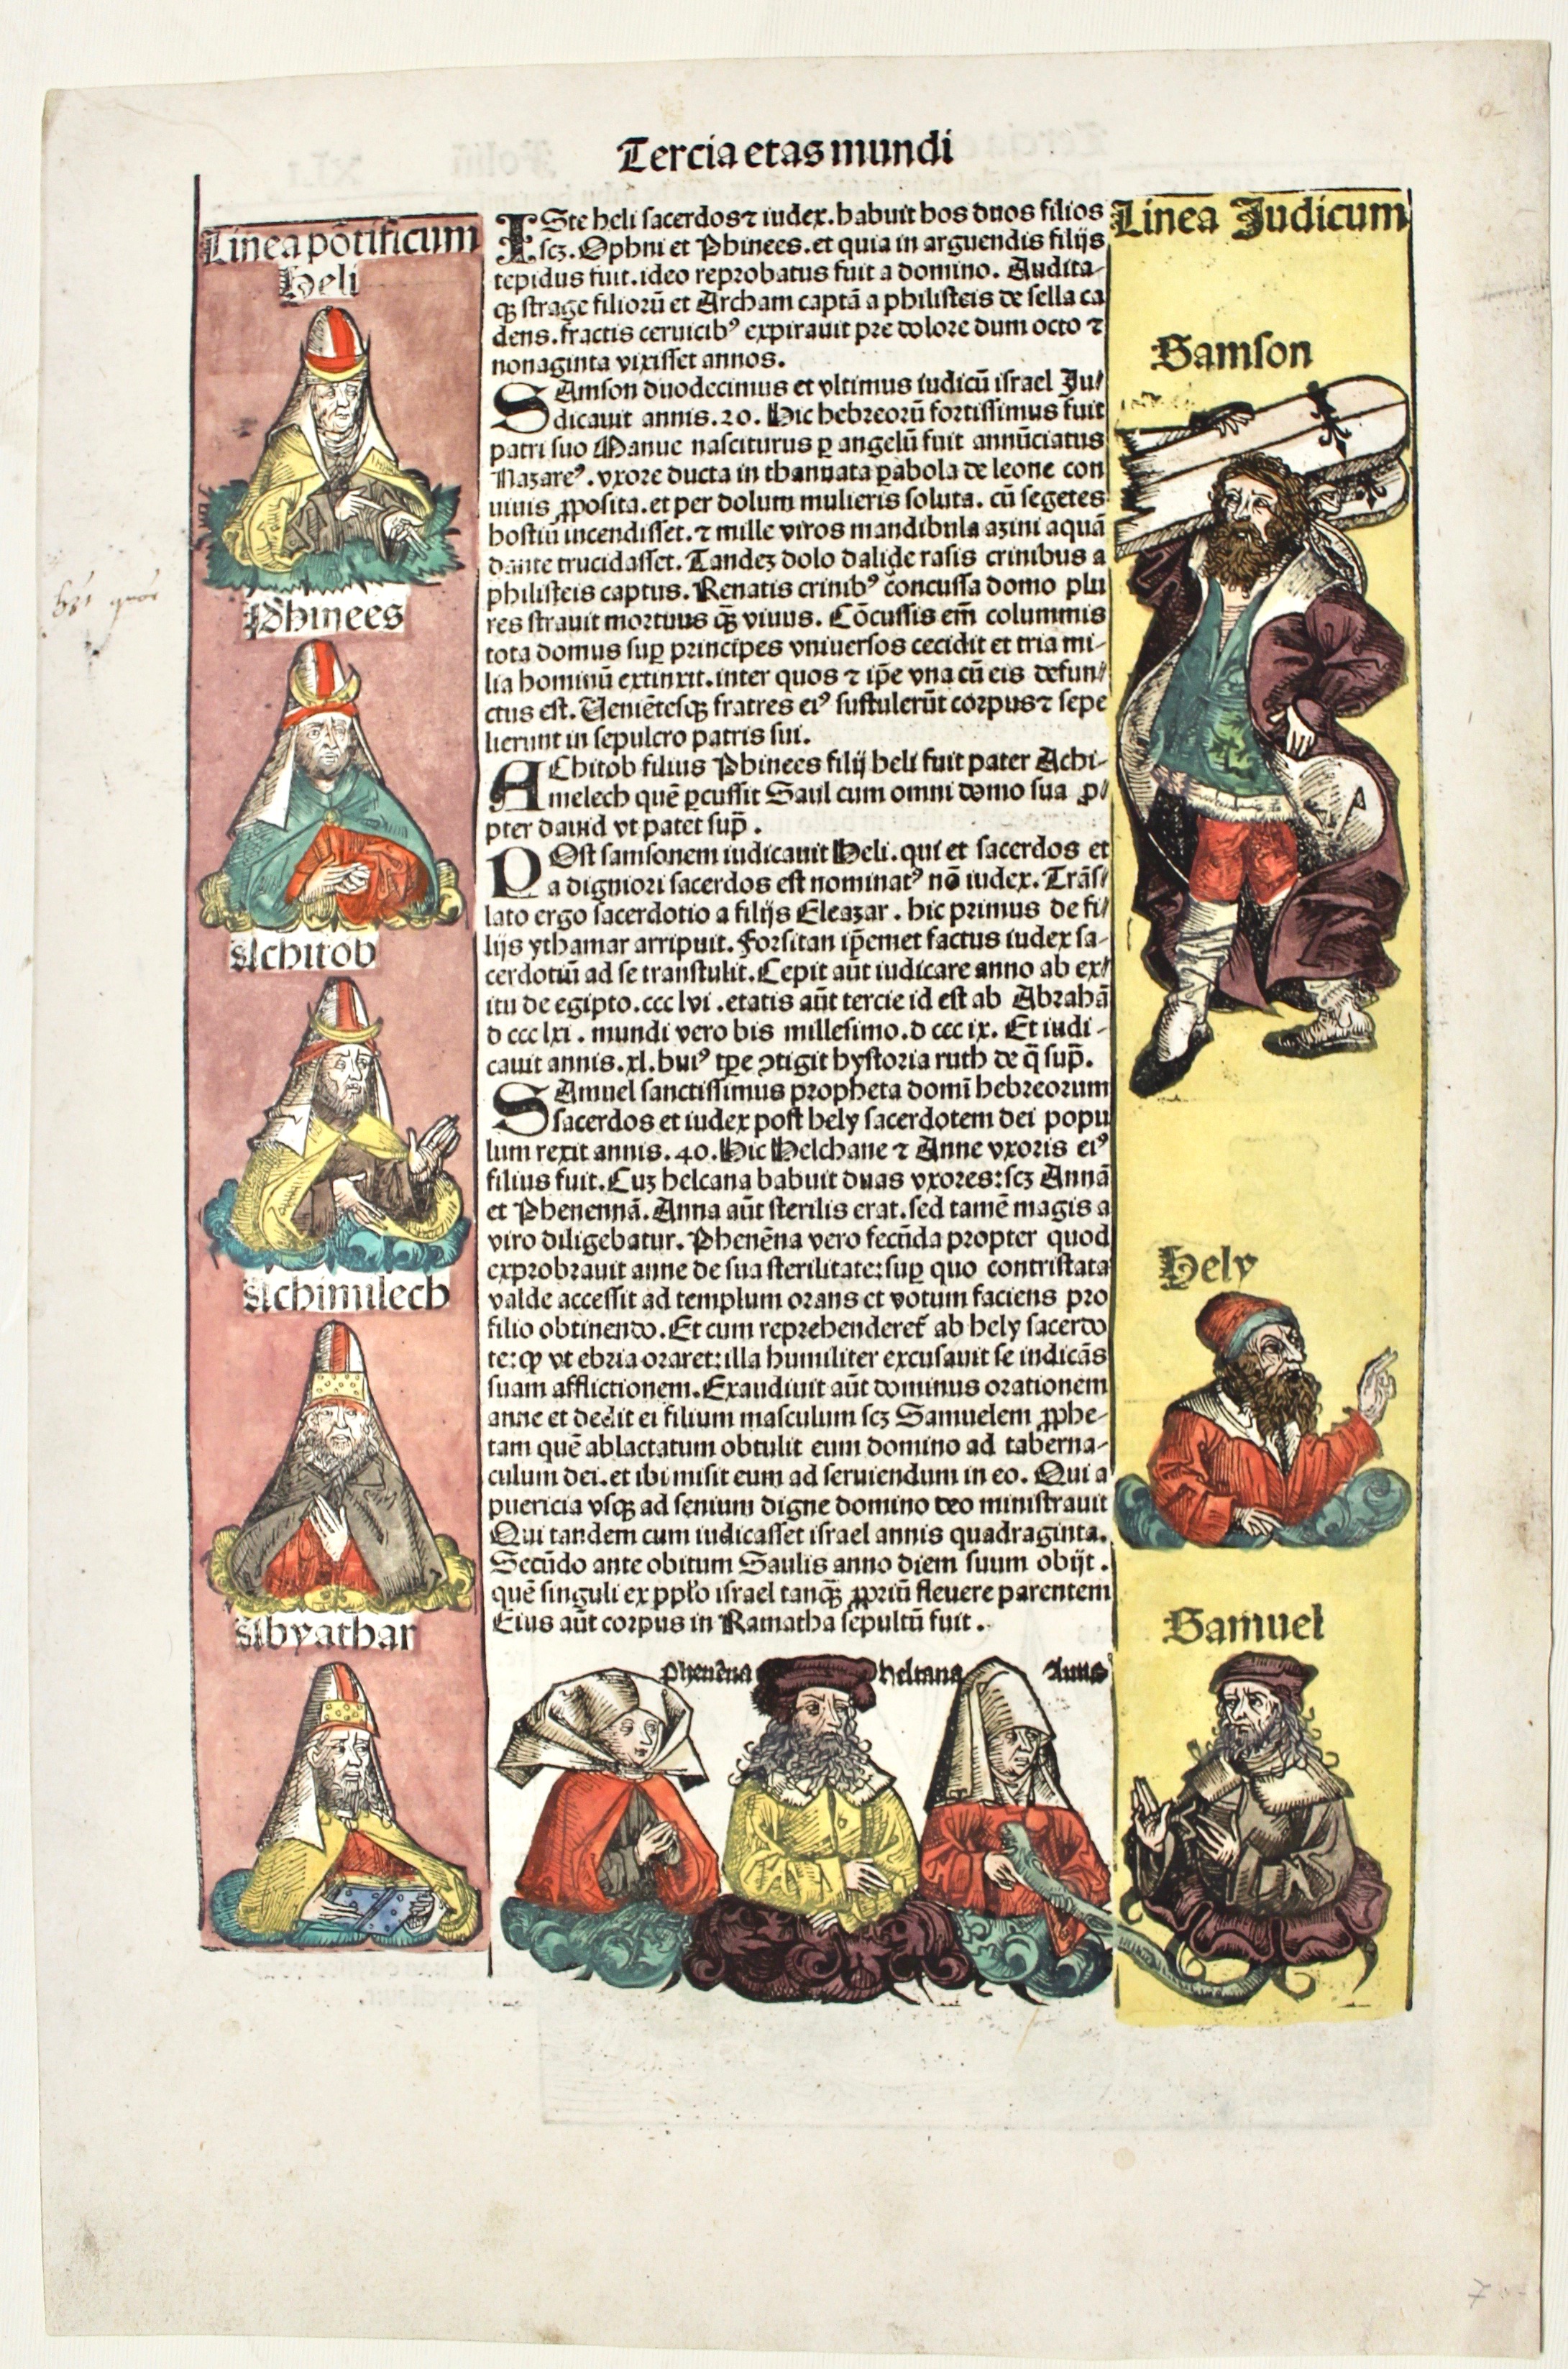 Tercia etas mundi
Linea põtificum
Heli
Phinees
Achitob
Achimilech
Abyathar
ISte heli sacerdos ⁊ iudex. habuit hos duos filios
scꝫ. Ophni et Phinees. et quia in arguendis filijs
tepidus fuit. ideo reprobatus fuit a domino. Audita-
qꝫ strage filiorũ et Archam captã a philisteis de sella ca
dens. fractis ceruicibꝰ expirauit pre dolore dum octo ⁊
nonaginta vixisset annos.
SAmson duodecimus et vltimus iudicũ israel Ju/
dicauit annis. 20. Hic hebreorũ fortissimus fuit
patri suo Manue nasciturus ꝑ angelũ fuit annũciatus
Nazareꝰ. vxore ducta in thannata ꝑabola de leone con
uiuis ꝓposita. et per dolum mulieris soluta. cũ segetes
hostiũ incendisset. ⁊ mille viros mandibula azini aquã
dante trucidasset. Tandeꝫ dolo dalide rasis crinibus a
philisteis captus. Renatis crinibꝰ concussa domo plu
res strauit mortuus qꝫ̃ viuus. Cõcussis em̃ colummis
tota domus suꝑ principes vniuersos cecidit et tria mi-
lia hominũ extinxit. inter quos ⁊ ip̃e vna cũ eis defun/
ctus est. Veniẽtesqꝫ fratres eiꝰ sustulerũt corpus ⁊ sepe
lierunt in sepulcro patris sui.
AChitob filius Phinees filij heli fuit pater Achi-
melech quẽ ꝑcussit Saul cum omni domo sua ꝓ/
pter dauid vt patet sup̃.
POst samsonem iudicauit Heli. qui et sacerdos et
a digniori sacerdos est nominatꝰ nõ iudex. Trãs/
lato ergo sacerdotio a filijs Eleazar. hic primus de fi/
lijs ythamar arripuit. Forsitan ip̃emet factus iudex sa-
cerdotiũ ad se transtulit. Cepit aũt iudicare anno ab ex/
itu de egipto. ccc lvi. etatis aũt tercie id est ab Abrahã
d ccc lxi. mundi vero bis millesimo. d ccc ix. Et iudi-
cauit annis. xl. huiꝰ tp̃e ꝯtigit hystoria ruth de q̃ sup̃.
SAmuel sanctissimus propheta domĩ hebreorum
sacerdos et iudex post hely sacerdotem dei popu
lum rexit annis. 40. Hic Helchane ⁊ Anne vxoris eiꝰ
filius fuit. Cuꝫ helcana habuit duas vxores: scꝫ Annã
et Phenennã. Anna aũt sterilis erat. sed tamẽ magis a
viro diligebatur. Phenẽna vero fecũda propter quod
exprobrauit anne de sua sterilitate: suꝑ quo contristata
valde accessit ad templum orans et votum faciens pro
filio obtinendo. Et cum reprehenderet᷑ ab hely sacerdo
te: ꝙ vt ebria oraret: illa humiliter excusauit se indicãs
suam afflictionem. Exaudiuit aũt dominus orationem
anne et dedit ei filium masculum scꝫ Samuelem ꝓphe-
tam quẽ ablactatum obtulit eum domino ad taberna-
culum dei. et ibi misit eum ad seruiendum in eo. Qui a
puericia vsqꝫ ad senium digne domino deo ministrauit
Qui tandem cum iudicasset israel annis quadraginta.
Secũdo ante obitum Saulis anno diem suum obijt.
quẽ singuli ex pp̃lo israel tanqꝫ̃ ꝓpriũ fleuere parentem
Eius aũt corpus in Ramatha sepultũ fuit.
phenẽna helcana Anna
Linea Judicum
Samson
Hely
Samuel